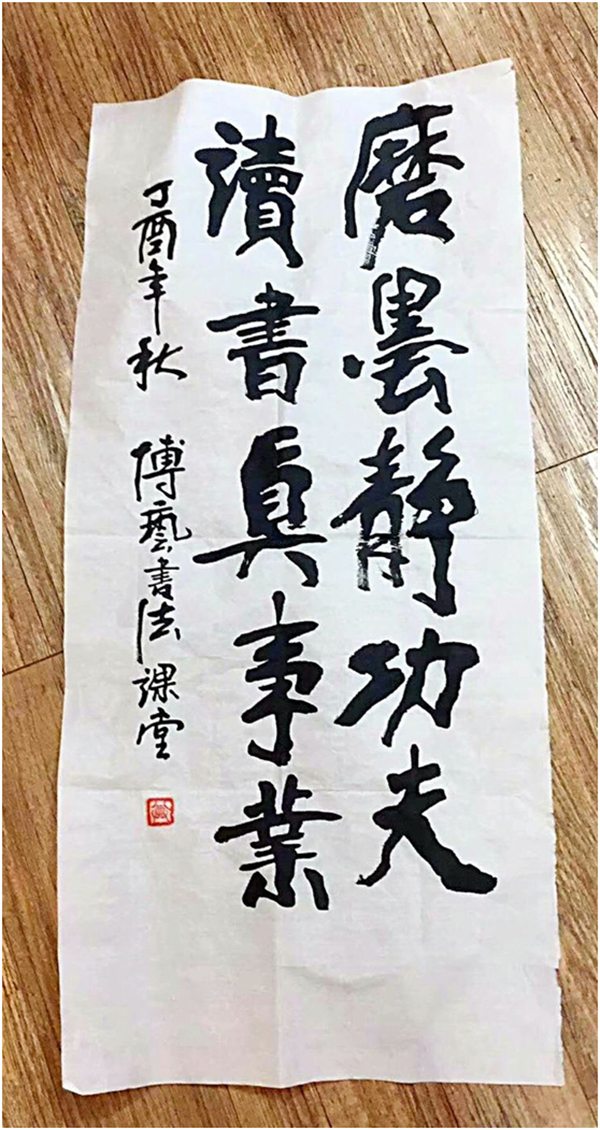 磨墨静功夫
讀書真事業
丁酉年秋 博藝書法课堂